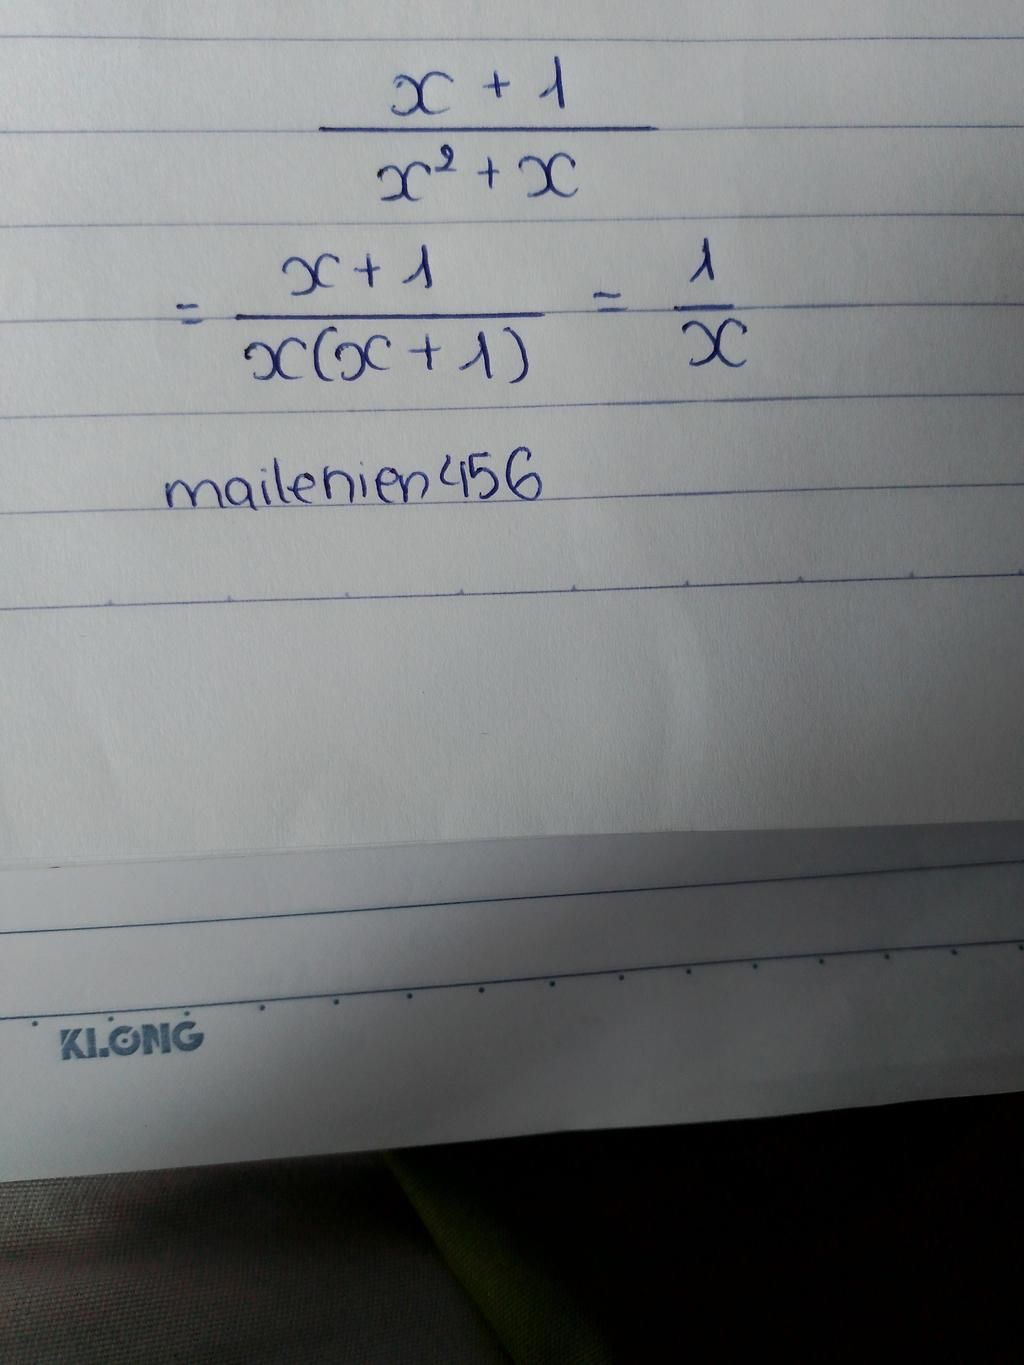 x + 1
x² + x
= x + 1 / x(x + 1) = 1 / x
mailenien456
KLONG